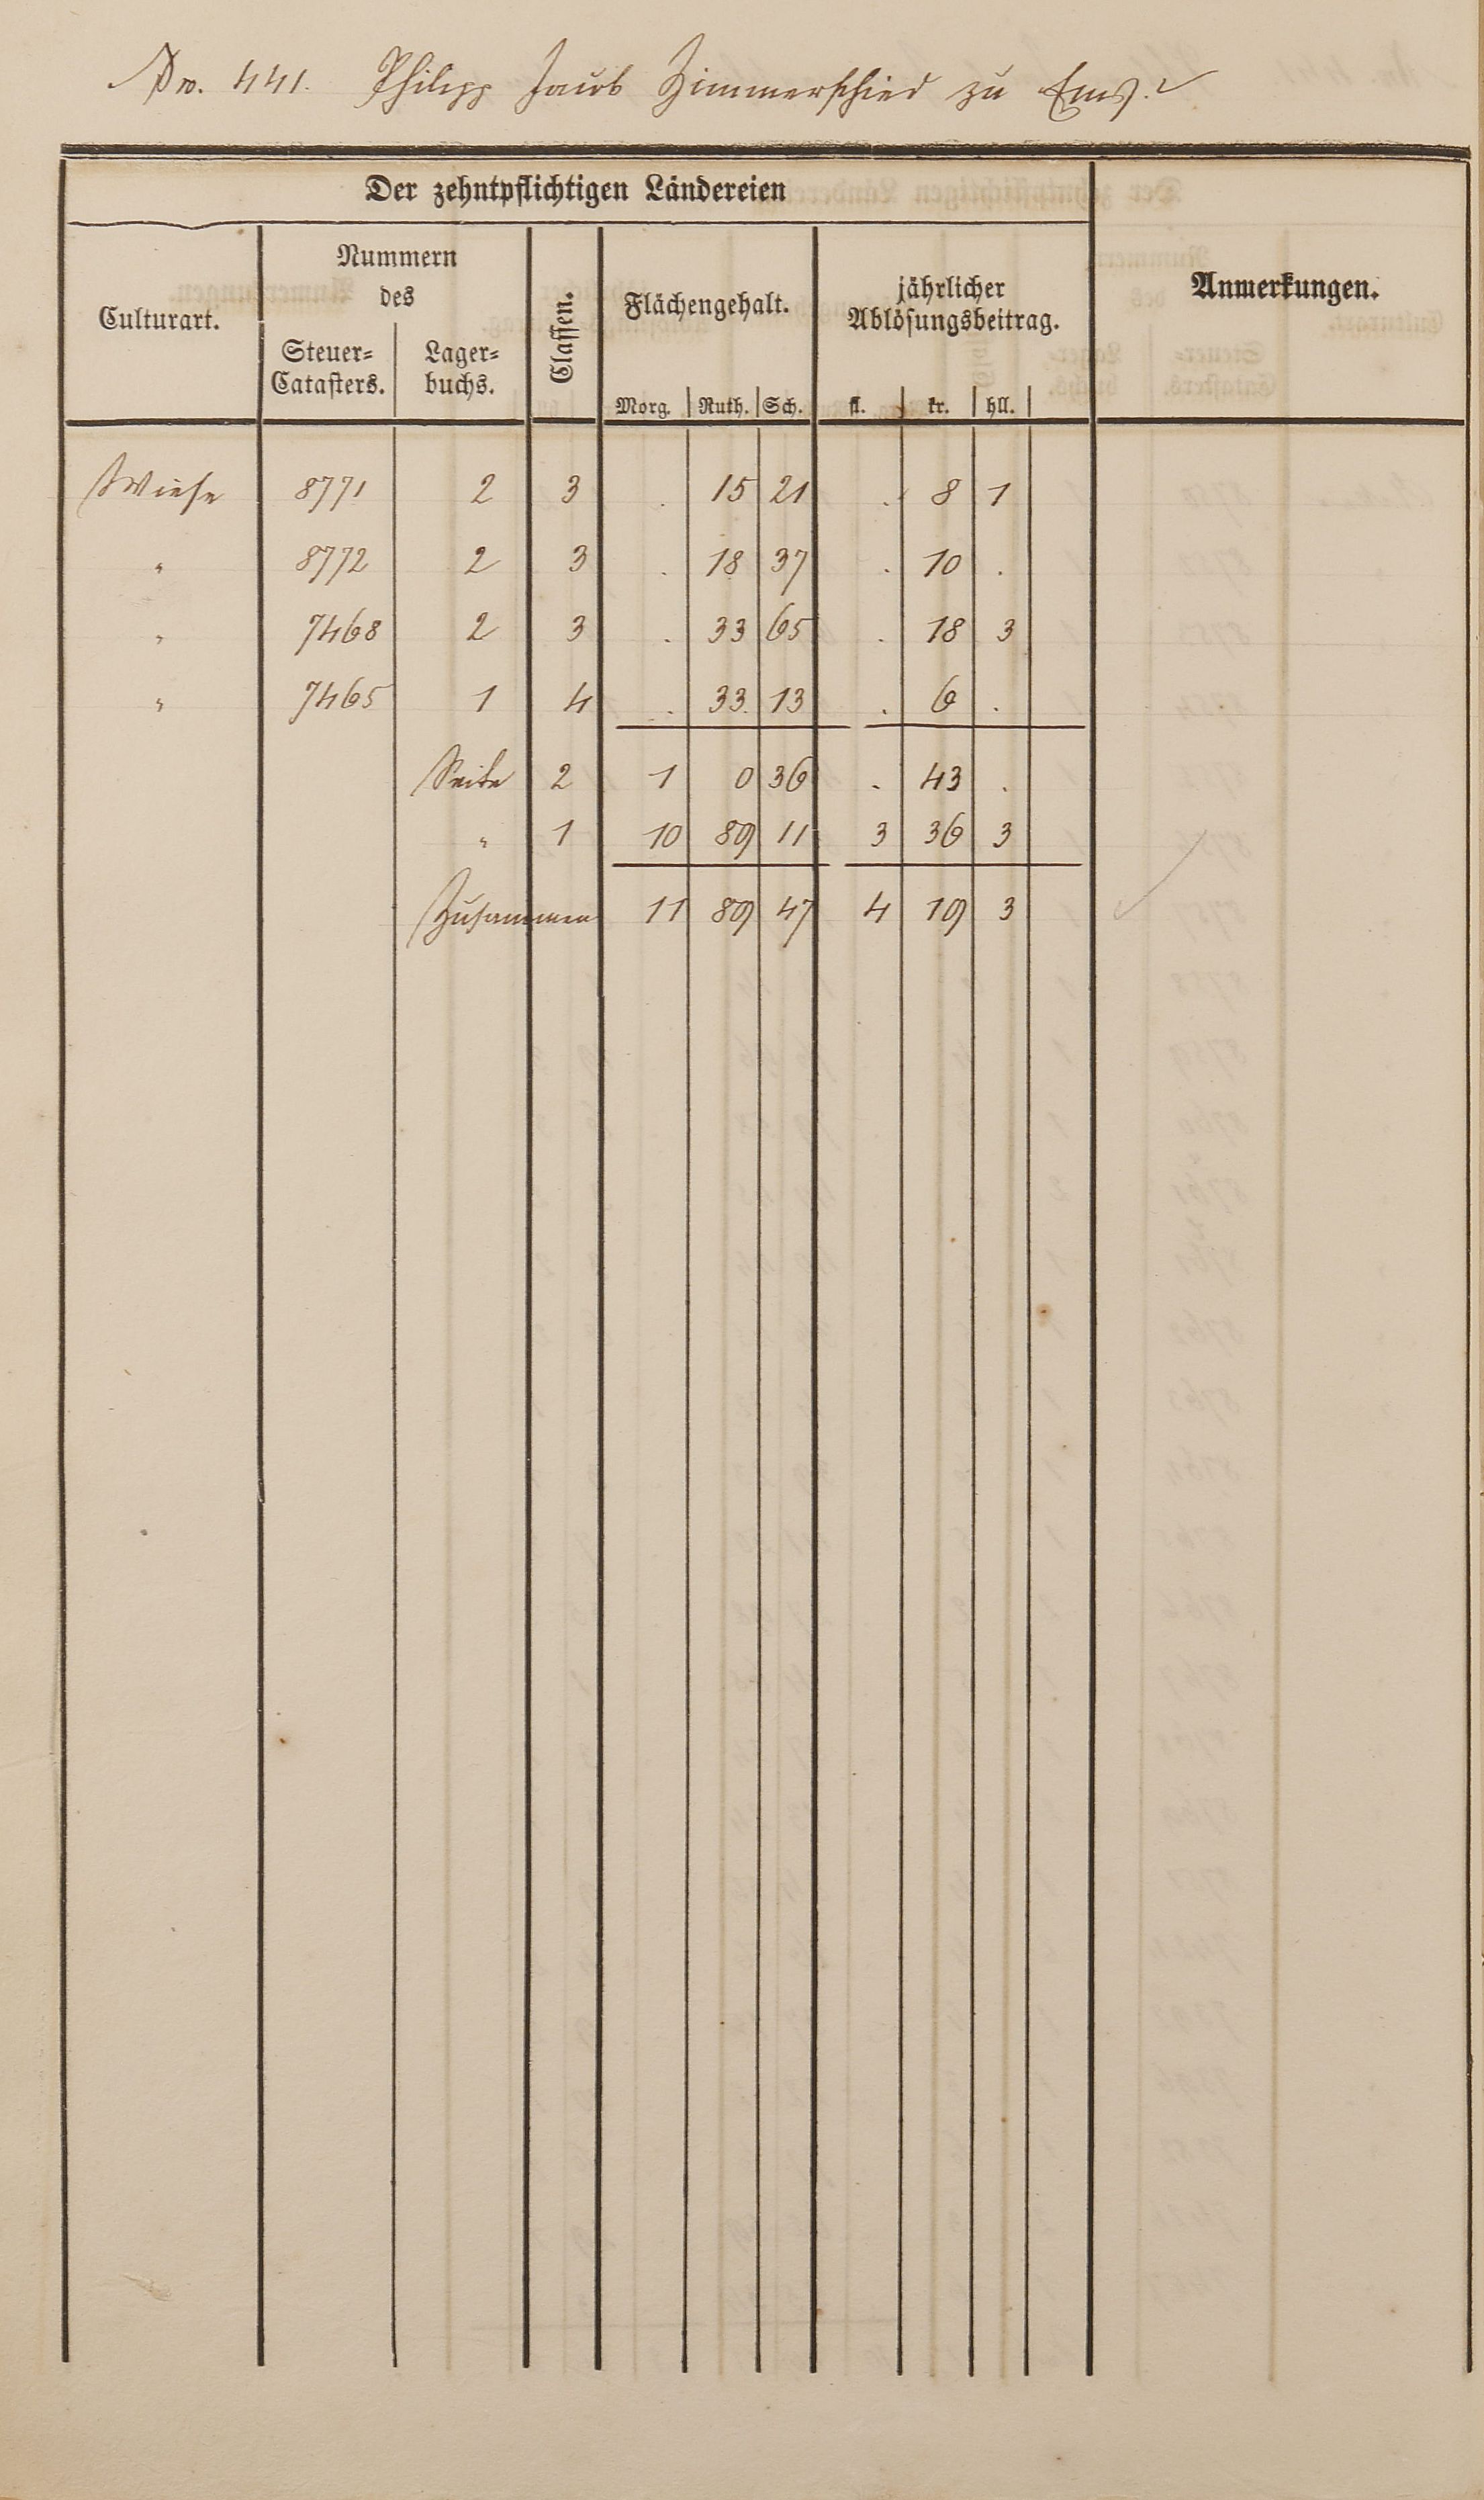 No. 441. Philipp Jacob Zimmerschied zu Ems.
Der zehntpflichtigen Ländereien
Culturart.
Nummern
des
Steuer=
Catasters.
Lager=
buchs.
Classen.
Flächengehalt.
Morg. Ruth. Sch.
jährlicher
Ablösungsbeitrag.
fl. kr. hll.
Anmerkungen.
Wiese 8771 2 3 . 15 21 . 8 1
" 8772 2 3 . 18 37 . 10 .
" 7468 2 3 . 33 65 . 18 3
" 7465 1 4 . 33 13 . 6 .
Seite 2 1 0 36 . 43 .
" 1 10 89 11 3 36 3
Zusammen 11 89 47 4 19 3